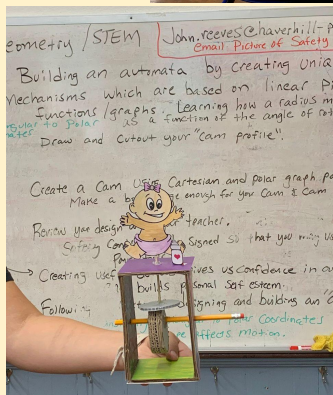 eometry / STEM
John.reeves@haverhill-p
email Picture of Safety
Building an automata by Creating Uniq
Mechanisms which are based on linear Pi
functions/graphs. Learning how a radius m
gular to Polar as a function of the angle of rot
ates
Draw and cutout your "cam profile".
Create a Cam Using Cartesian and polar graph pa
Make a b enough for your Cam & Cam
Review your design teacher.
Safety Con Signed so that you may us
Creating usef ives us confidence in ou
builds personal self esteem.
Followi designing and building an
Coordinates
affects motion.